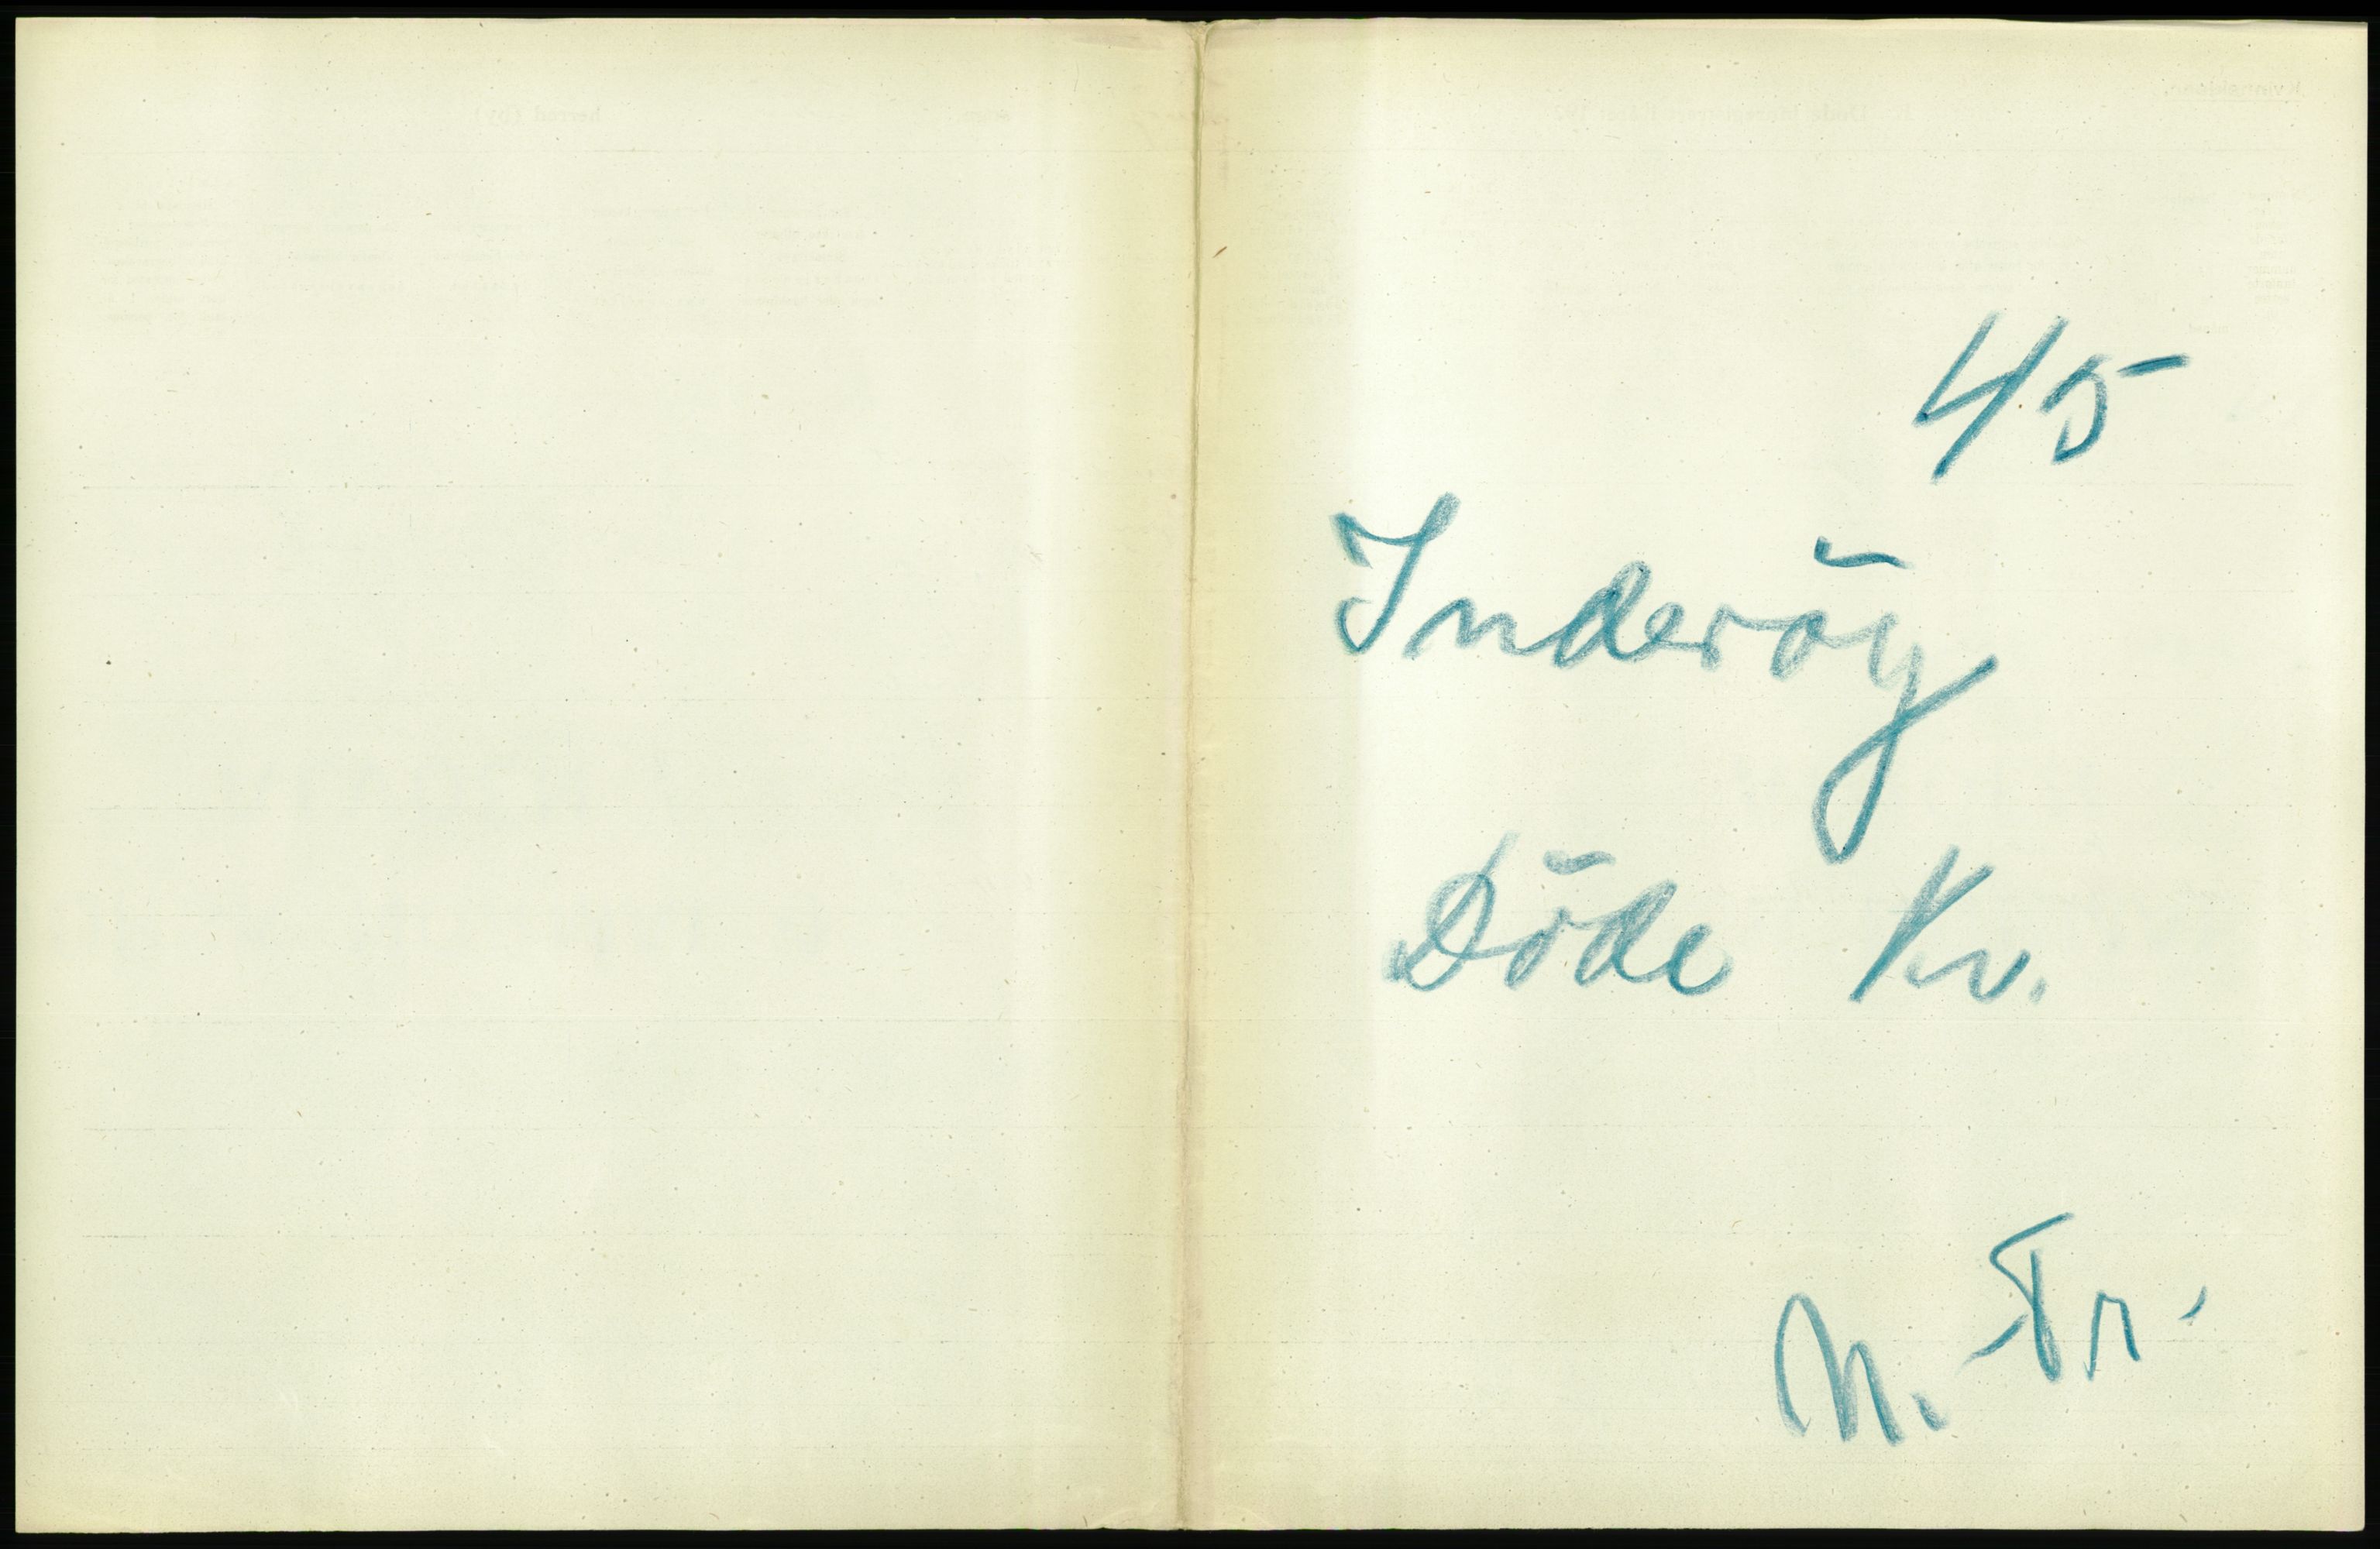 45
Inderöy
Döde Kv.
N. Tr.